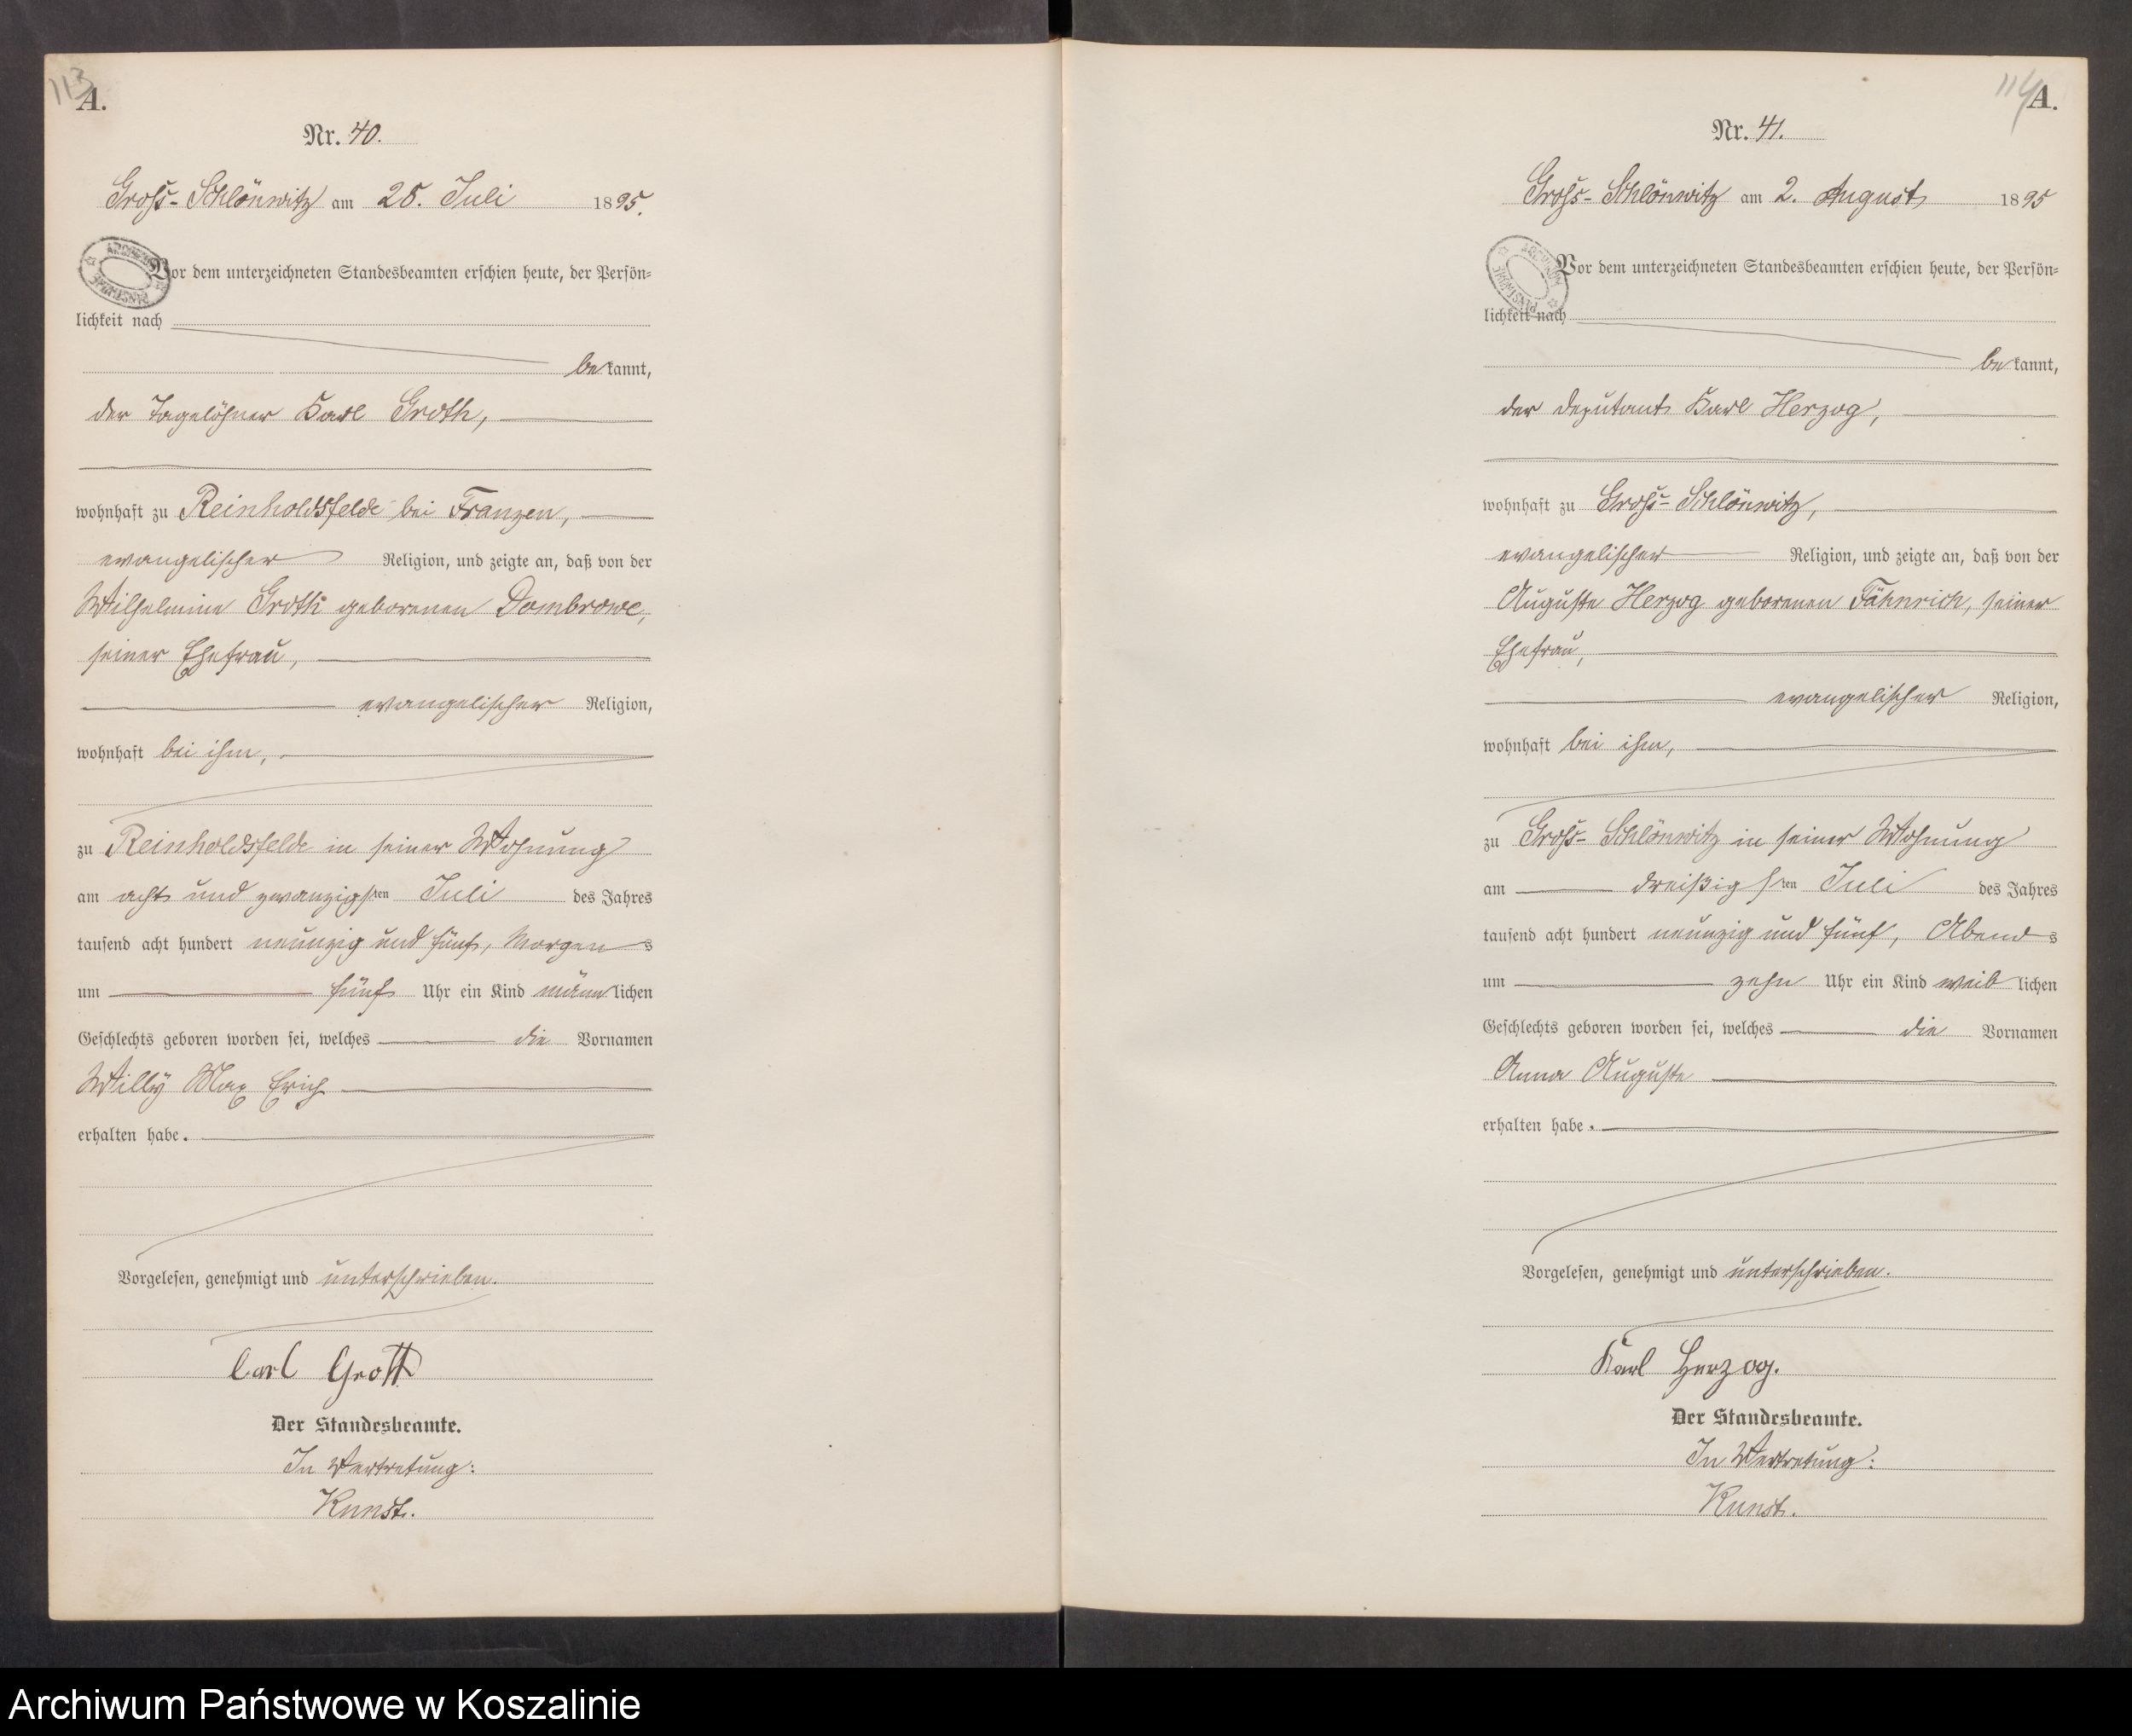 113
A.
Nr. 40.
Groß-Schlönwitz am 28. Juli 1895.
Vor dem unterzeichneten Standesbeamten erschien heute, der Persön=
lichkeit nach
bekannt,
der Tagelöhner Karl Groth,
wohnhaft zu Reinholdsfelde bei Franzen,
evangelischer Religion, und zeigte an, daß von der
Wilhelmine Groth geborenen Dombrowe,
seiner Ehefrau,
evangelischer Religion,
wohnhaft bei ihm,
zu Reinholdsfelde in seiner Wohnung
am acht und zwanzigsten Juli des Jahres
tausend acht hundert neunzig und fünf, Morgens
um fünf Uhr ein Kind männlichen
Geschlechts geboren worden sei, welches die Vornamen
Willy Max Erich
erhalten habe.
Vorgelesen, genehmigt und unterschrieben.
Carl Grott
Der Standesbeamte.
In Vertretung:
Kunst.
114
A.
Nr. 41.
Groß-Schlönwitz am 2. August 1895
Vor dem unterzeichneten Standesbeamten erschien heute, der Persön=
lichkeit nach
bekannt,
der Deputant Karl Herzog,
wohnhaft zu Groß-Schlönwitz,
evangelischer Religion, und zeigte an, daß von der
Auguste Herzog geborenen Fähnrich, seiner
Ehefrau,
evangelischer Religion,
wohnhaft bei ihm,
zu Groß-Schlönwitz in seiner Wohnung
am dreißigsten Juli des Jahres
tausend acht hundert neunzig und fünf, Abends
um zehn Uhr ein Kind weiblichen
Geschlechts geboren worden sei, welches die Vornamen
Anna Auguste
erhalten habe.
Vorgelesen, genehmigt und unterschrieben.
Karl Herzog.
Der Standesbeamte.
In Vertretung:
Kunst.
Archiwum Państwowe w Koszalinie